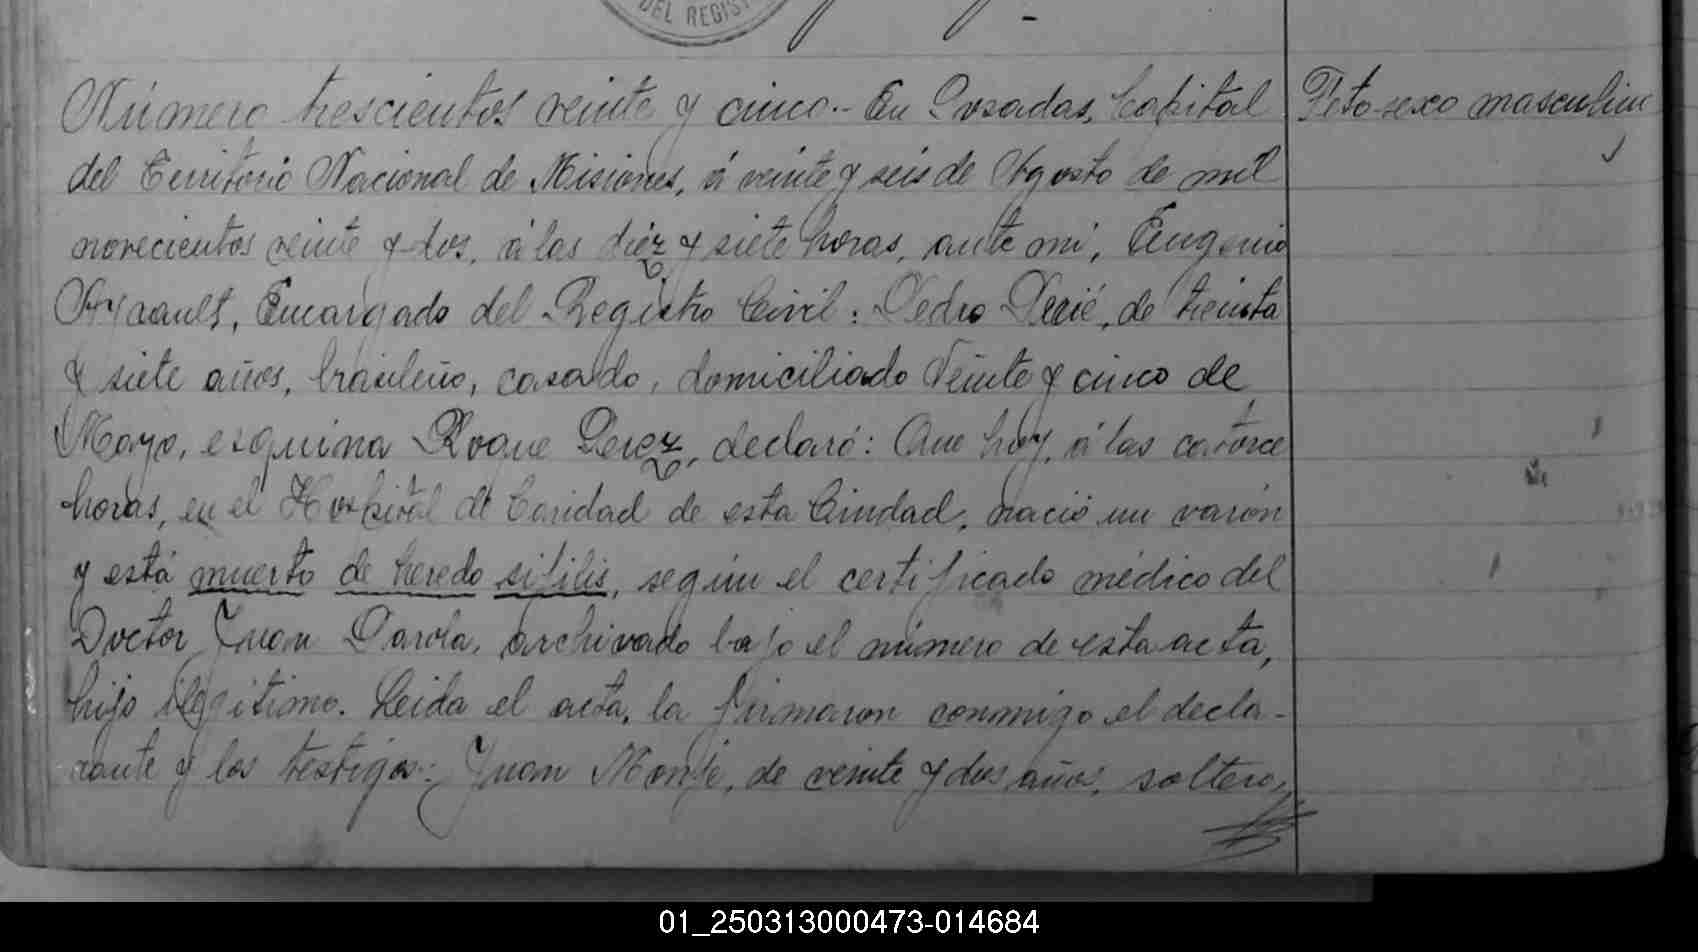 DEL REGIST
Número trescientos veinte y cinco.- En Posadas, Capital
Feto-sexo masculino
del Territorio Nacional de Misiones, á veinte y seis de Agosto de mil
novecientos veinte y dos, á las diéz y siete horas, ante mi, Eugenio
Ayrault, Encargado del Registro Civil: Pedro, de treinta
y siete años, brasileño, casado, domiciliado Veinte y cinco de
Mayo, esquina Roque Perez, declaró: Que hoy, á las catorce
horas, en el Hospital de Caridad de esta Ciudad, nació un varón
y está muerto de heredo sifilis, según el certificado médico del
Doctor Juan Darola, archivado bajo el número de esta acta,
hijo ilegitimo. Leida el acta, la firmaron conmigo el decla-
rante y los testigos: Juan Monje, de veinte y dos años, soltero,
01_250313000473-014684